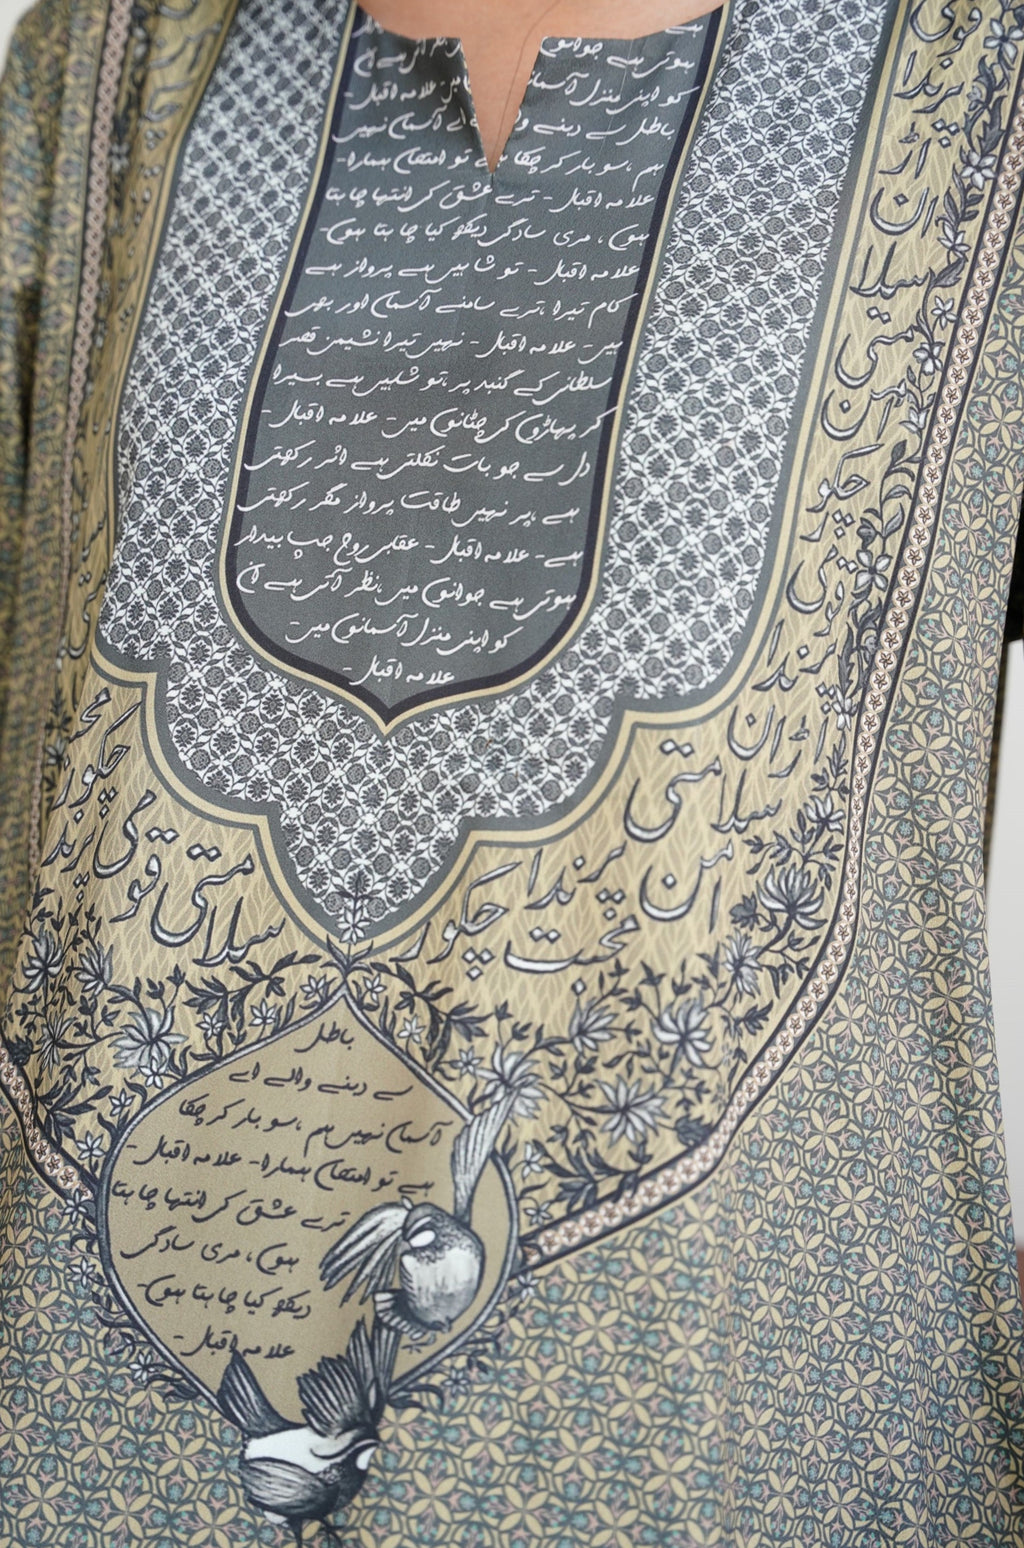 ہوتی ہے جوانوں
کو اپنی منزل آسمانوں میں علامہ اقبال-
باطل سے دبنے والے اے آسماں نہیں
ہم ،سو بار کر چکا ہے تو امتحان ہمارا-
علامہ اقبال - ترے عشق کی انتہا چاہتا
ہوں ، مری سادگی دیکھ کیا چاہتا ہوں-
علامہ اقبال - تو شاہیں ہے پرواز ہے
کام تیرا ،ترے سامنے آسماں اور بھی
ہیں- علامہ اقبال - نہیں تیرا نشیمن قصر
سلطانی کے گنبد پر ،تو شاہیں ہے بسیرا
کر پہاڑوں کی چٹانوں میں- علامہ اقبال -
دل سے جو بات نکلتی ہے اثر رکھتی
ہے ،پر نہیں طاقت پرواز مگر رکھتی
ہے - علامہ اقبال - عقابی روح جب بیدار
ہوتی ہے جوانوں میں ،نظر آتی ہے ان
کو اپنی منزل آسمانوں میں-
علامہ اقبال -
قومی
پرندا
اڑان
سلامتی
امن
چکور
قومی
پرندا
اڑان
سلامتی
امن
پرندا
محبت
چکور
سلامتی
قومی
پرندا
چکور
باطل
سے دبنے والے اے
آسماں نہیں ہم ،سو بار کر چکا
ہے تو امتحان ہمارا- علامہ اقبال -
ترے عشق کی انتہا چاہتا
ہوں ، مری سادگی
دیکھ کیا چاہتا ہوں-
علامہ اقبال -